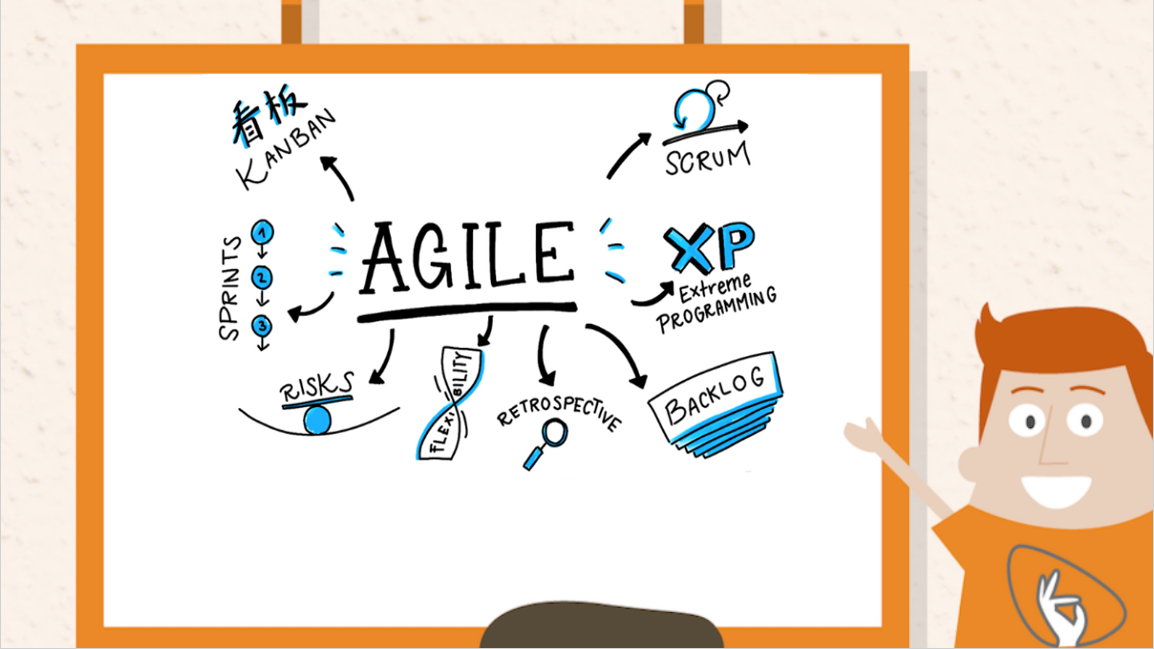 看板
KANBAN
SCRUM
AGILE
SPRINTS
1
2
3
XP
Extreme
PROGRAMMING
RISKS
FLEXIBILITY
RETROSPECTIVE
BACKLOG